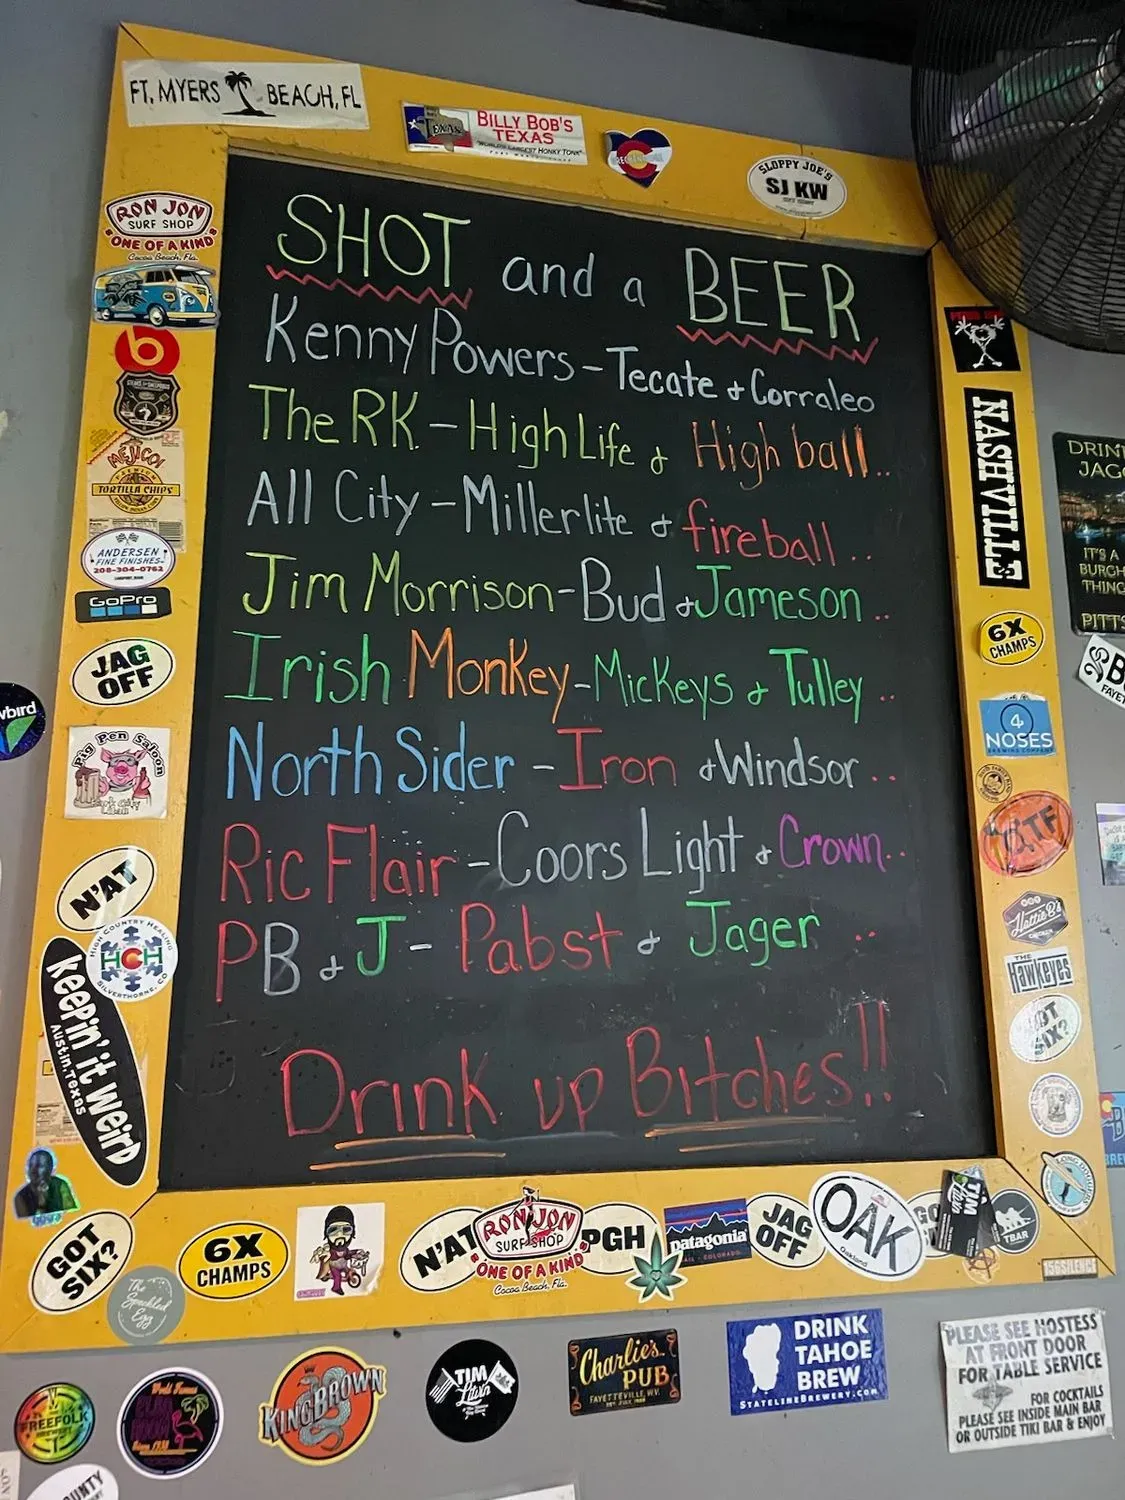 FT. MYERS BEACH, FL
TEXAS
BILLY BOB'S
TEXAS
"WORLD'S LARGEST HONKY TONK"
SLOPPY JOE'S
SJ KW
RON JON
SURF SHOP
"ONE OF A KIND"
Cocoa Beach, Fla.
SHOT and a BEER
Kenny Powers - Tecate & Corraleo
The RK - High Life & High ball..
All City - Millerlite & fireball..
Jim Morrison - Bud & Jameson..
Irish Monkey - Mickeys & Tulley..
North Sider - Iron & Windsor..
Ric Flair - Coors Light & Crown..
PB & J - Pabst & Jager..
Drink up Bitches!!
b
MEJICO!
PREMIUM
TORTILLA CHIPS
ANDERSEN
FINE FINISHES
208-304-0762
GoPro
JAG
OFF
Pig Pen Saloon
N'AT
HIGH COUNTRY HEALING
HCH
SILVERTHORNE, CO
Keepin' it weird
Austin, Texas
NASHVILLE
6X
CHAMPS
4
NOSES
BREWING COMPANY
Hattie B's
THE
HAWKEYES
GOT
SIX?
DRINK
IT'S A
GOT
SIX?
6X
CHAMPS
N'AT
RON JON
SURF SHOP
"ONE OF A KIND"
Cocoa Beach, Fla.
PGH
patagonia
JAG
OFF
OAK
Oakland
TBAR
156SILENCE
The
Speckled
Egg
FREEFOLK
World Famous
KING BROWN
TIM
Charlie's
PUB
FAYETTEVILLE, W.V.
DRINK
TAHOE
BREW
STATELINEBREWERY.COM
PLEASE SEE HOSTESS
AT FRONT DOOR
FOR TABLE SERVICE
FOR COCKTAILS
PLEASE SEE INSIDE MAIN BAR
OR OUTSIDE TIKI BAR & ENJOY